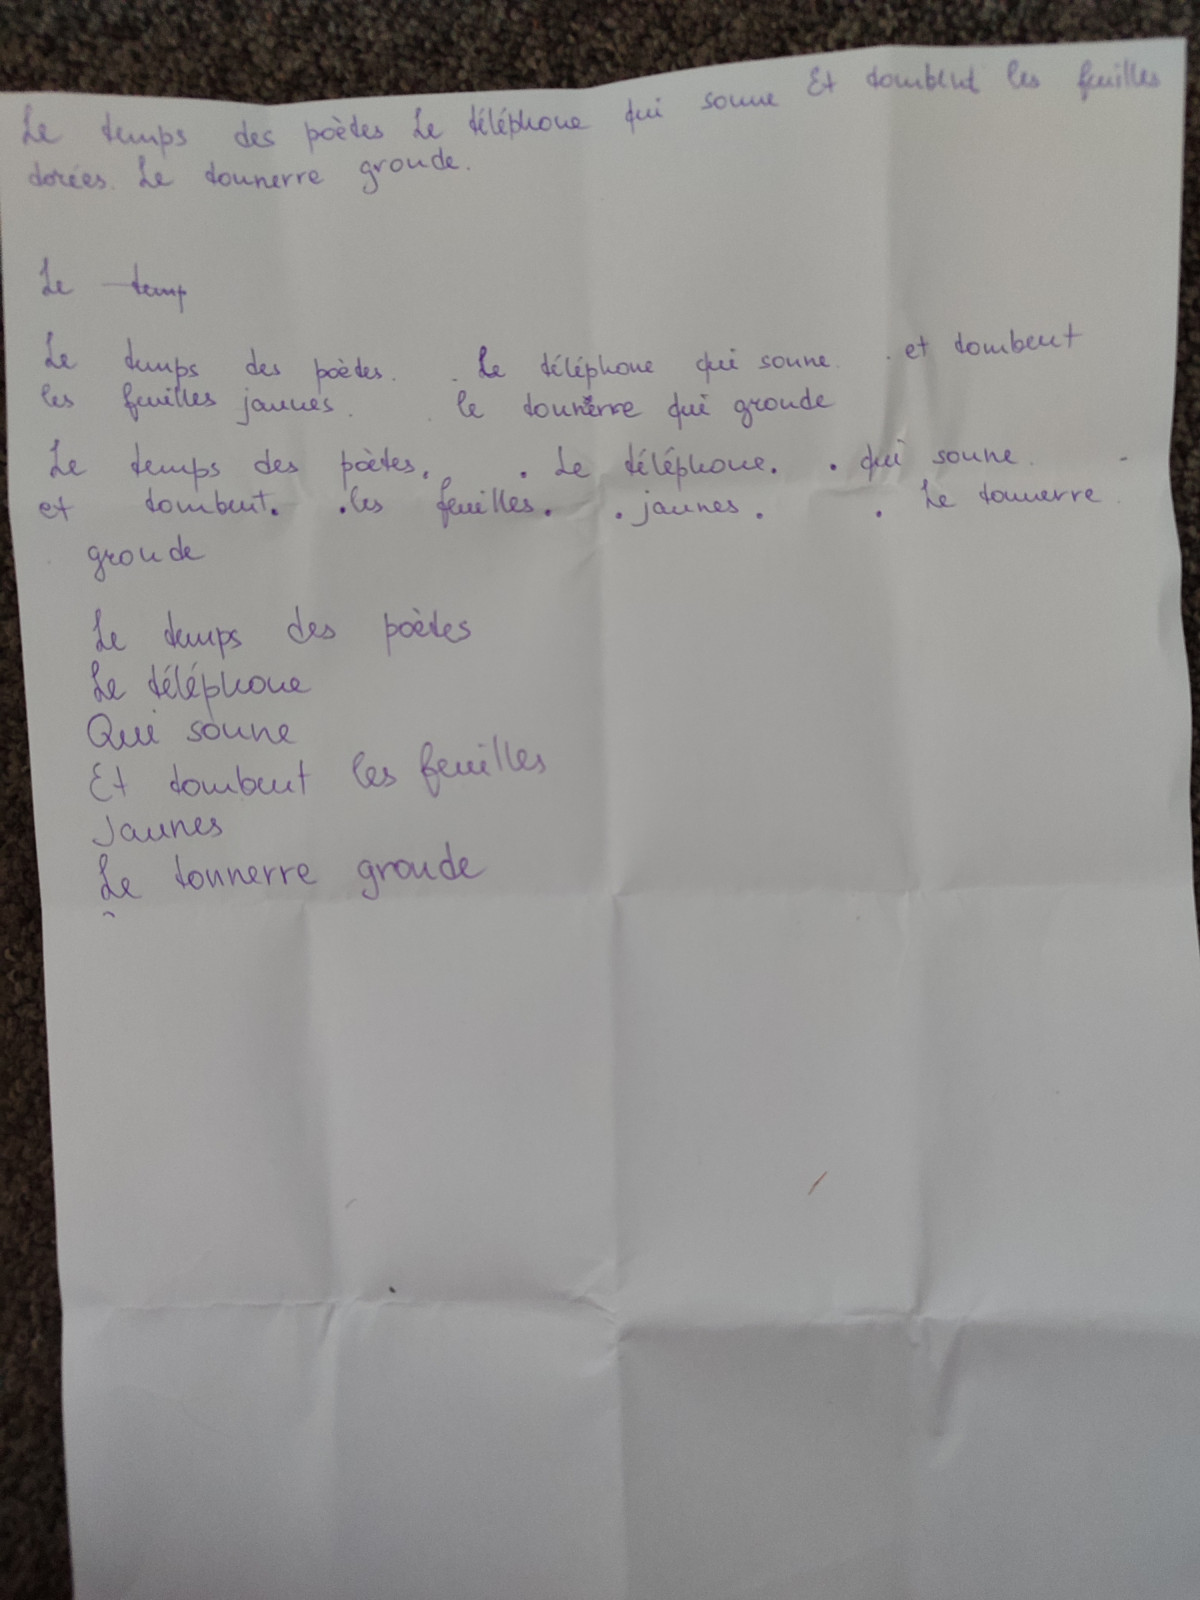 Le temps des poètes Le téléphone qui sonne Et tombent les feuilles
dorées. Le tonnerre gronde.
Le temp
Le temps des poètes. . Le téléphone qui sonne. . et tombent
les feuilles jaunes. . le tonnerre qui gronde
Le temps des poètes. . Le téléphone. . qui sonne. .
et tombent. .les feuilles. . jaunes. . Le tonnerre.
. gronde
Le temps des poètes
Le téléphone
Qui sonne
Et tombent les feuilles
Jaunes
Le tonnerre gronde